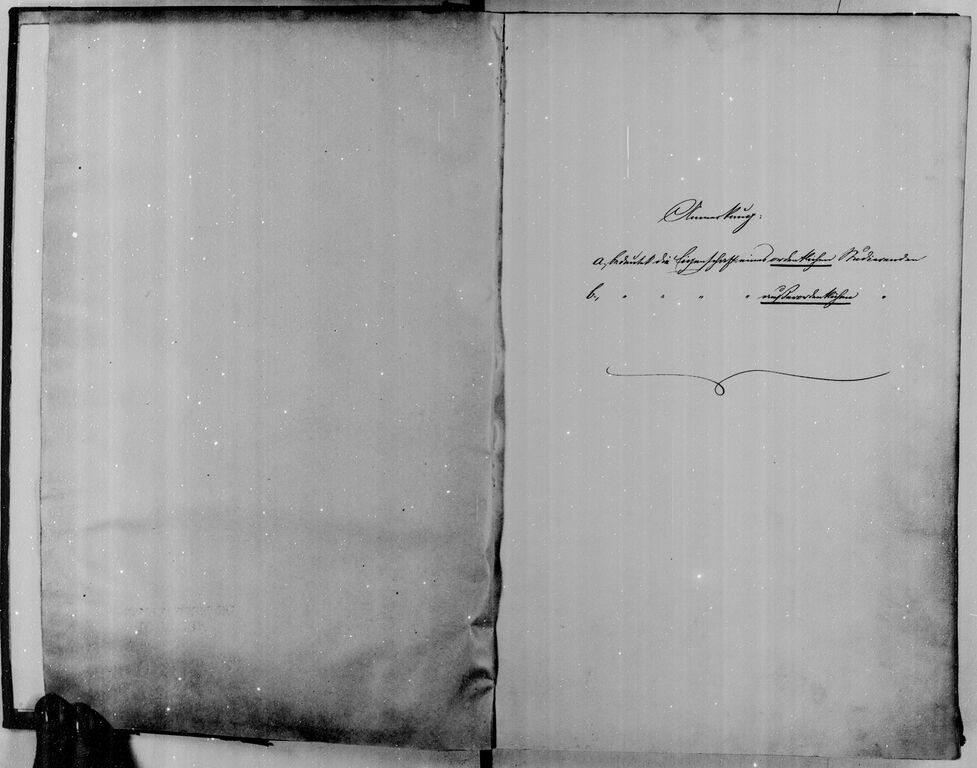 Anmerkung:
a, bedeutet die Eigenschaft eines ordentlichen Studierenden
b, " " " " außerordentlichen "